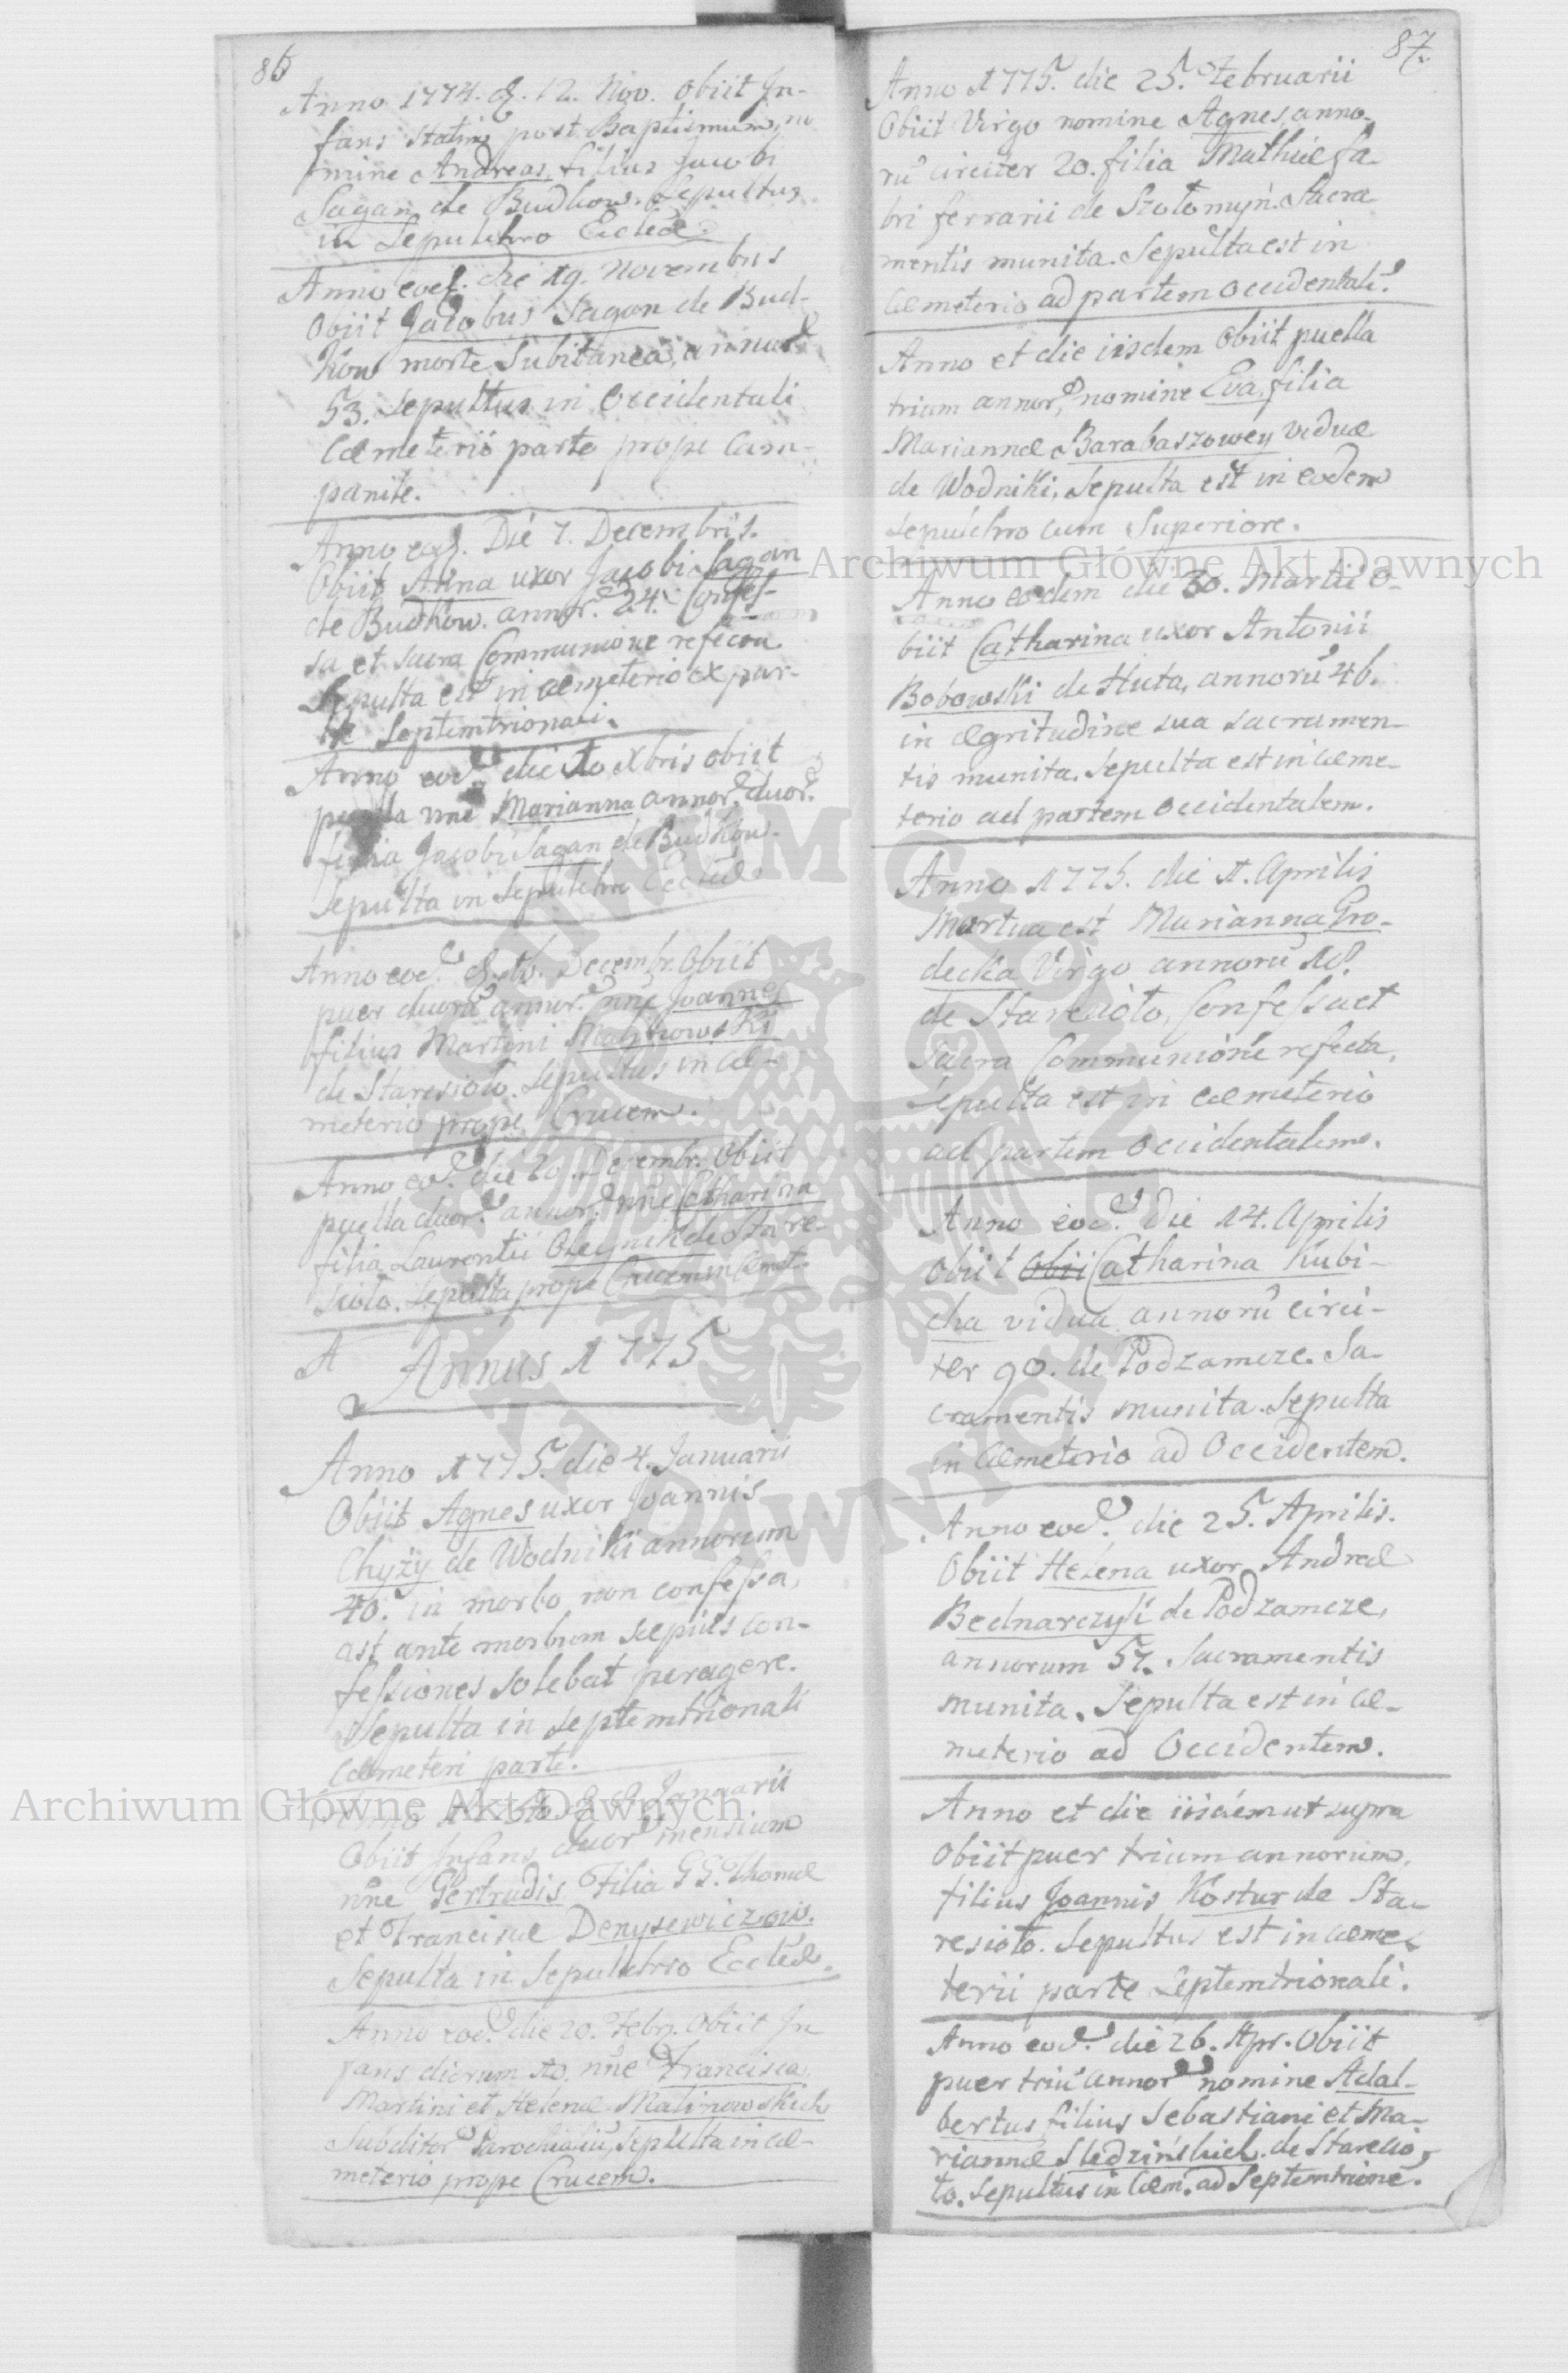 86
Anno 1774. d. 12. Nov. obiit In-
fans statim post Baptismum, no
mine Andreas, filius Jacobi
Sagan de Budkow. Sepultus
in Sepulchro Eccleæ.
Anno eod. die 19. Novembris
Obiit Jacobus Sagan de Bud-
kow morte Subitanea, annor
53. Sepultus in Occidentali
Cæmeterii parte prope Cam-
panile.
Anno eod. Die 7. Decembris.
Obiit Anna uxor Jacobi Sagan
de Budkow. annor. 24. Confes-
sa et sacra Communione refecta
Sepulta est in cæmeterio ex par-
te Septemtrionali.
Anno eod. die 10 Xbris obiit
puella nne Marianna annor. duor.
filia Jacobi Sagan de Budkow.
Sepulta in Sepulchro Eccleæ
Anno eod. d. Decembr. Obiit
puer duorū annor. nne Joannes
filius Martini Malinowski
de Staresioło. Sepultus in Cæ-
meterio prope Crucem.
Anno eod. die 20. Decembr. Obiit
puella duor. annor. nne Catharina
filia Laurentii Oleynik de Stare-
sioło. Sepulta prope Crucem in Cæmet.
A Annus 1775
Anno 1775. die 4. Januarii
Obiit Agnes uxor Joannis
Chyży de Wodniki annorum
40. in morbo non confessa,
ast ante morbum sæpius con-
fessiones solebat peragere.
Sepulta in septemtrionali
Cæmeteri parte.
Anno Januarii
Obiit Infans duor mensium
nne Gertrudis Filia GG. Thomæ
et Franciscæ Denysewiczow.
Sepulta in Sepulchro Eccleæ.
Anno eod. die 20. Febr. Obiit In
fans dierum 10. nne Francisca
Martini et Helenæ Malinowskich
Subditor Parochialiū, Sepulta in Cæ-
meterio prope Crucem.
87.
Anno 1775. die 25. Februarii
Obiit Virgo nomine Agnes, anno-
rū circiter 20. filia Mathiæ fa-
bri ferrarii de Szołomyń. Sacra
mentis munita. Sepulta est in
Cæmeterio ad partem occidentalē.
Anno et die iisdem Obiit puella
trium annor, nomine Eva, filia
Mariannæ Barabaszowey viduæ
de Wodniki, Sepulta est in eodem
sepulchro cum Superiore.
Anno eodem die 30. Martii o-
biit Catharina uxor Antonii
Bobowski de Huta, annorū 46.
in ægritudine sua sacramen-
tis munita. Sepulta est in cæme-
terio ad partem occidentalem.
Anno 1775. die 1. Aprilis
Mortua est Marianna Gro-
decka Virgo annorū 18.
de Staresioło, Confessa et
Sacra Communione refecta,
Sepulta est in cæmeterio
ad partem occidentalem.
Anno eod. Die 14. Aprilis
Obiit Obii Catharina Kubi-
cha vidua annorū circi-
ter 90. de Podzamcze. Sa-
cramentis munita. Sepulta
in Cæmeterio ad Occidentem.
Anno eod. die 25. Aprilis.
Obiit Helena uxor Andreæ
Bednarczyk de Podzamcze,
annorum 57. Sacramentis
munita. Sepulta est in Cæ-
meterio ad Occidentem.
Anno et die iisdem ut supra
Obiit puer trium annorum,
filius Joannis Kostur de Sta-
resioło. Sepultus est in Cæme-
terii parte Septemtrionali.
Anno eod. die 26. Apr. Obiit
puer triū annor nomine Adal-
bertus filius Sebastiani et Ma-
riannæ Sledzińskich de Staresio,
ło. Sepultus in Cæm. ad Septemtrionē.
Archiwum Główne Akt Dawnych
Archiwum Główne Akt Dawnych
ARCHIWUM GŁÓWNE
AKT DAWNYCH